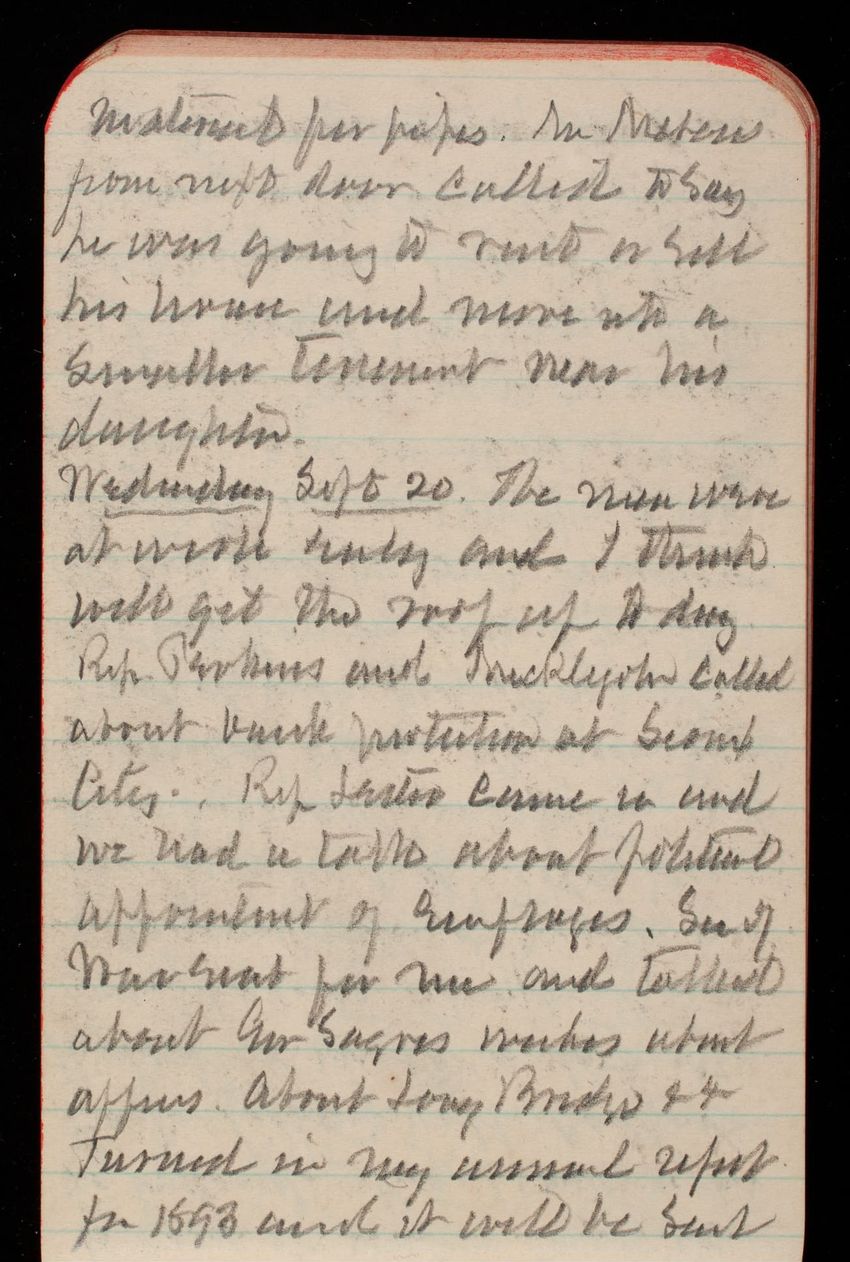 material for pipes. Mr
from next door called to say
he was going to rent or sell
his house and move into a
smaller tenement near his
daughter.
Wednesday Sept 20. The men were
at work early and I think
will get the roof up to day
Rep. Perkins and called
about bank protection at Sioux
City. Rep Lester came in and
we had a talk about political
appointment of Employes. Sec of
War sent for me and talked
about Gen wishes about
affairs. About Long Bridge &c
Turned in my annual report
for 1893 and it will be sent